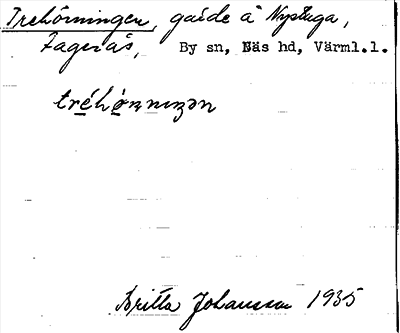 Trehörningen, gärde å Nystuga,
Fagerås, By sn, Näs hd, Värml.l.
tréhö̀ṇṇıŋən
Britta Johansson 1935